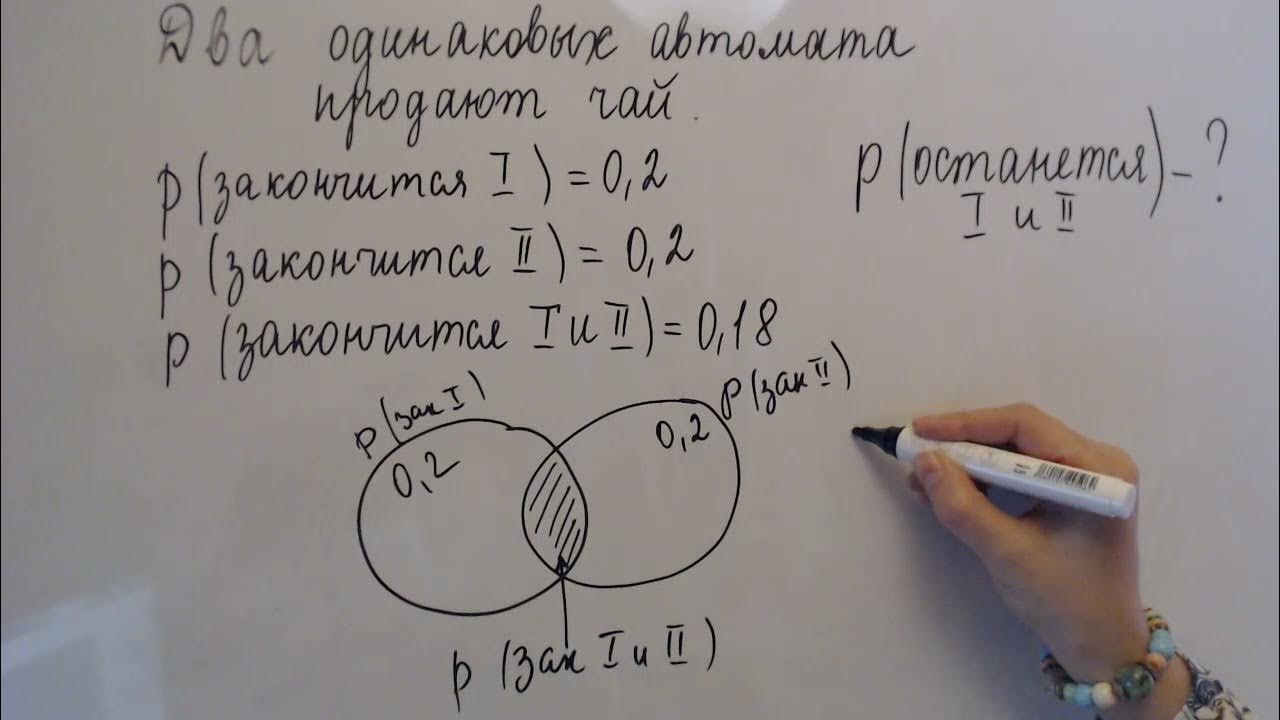 Два одинаковых автомата
продают чай.
p (закончится I) = 0,2
p (закончится II) = 0,2
p (закончится I и II) = 0,18
p (останется) - ?
I и II
p (зак I)
0,2
p (зак II)
0,2
p (зак I и II)